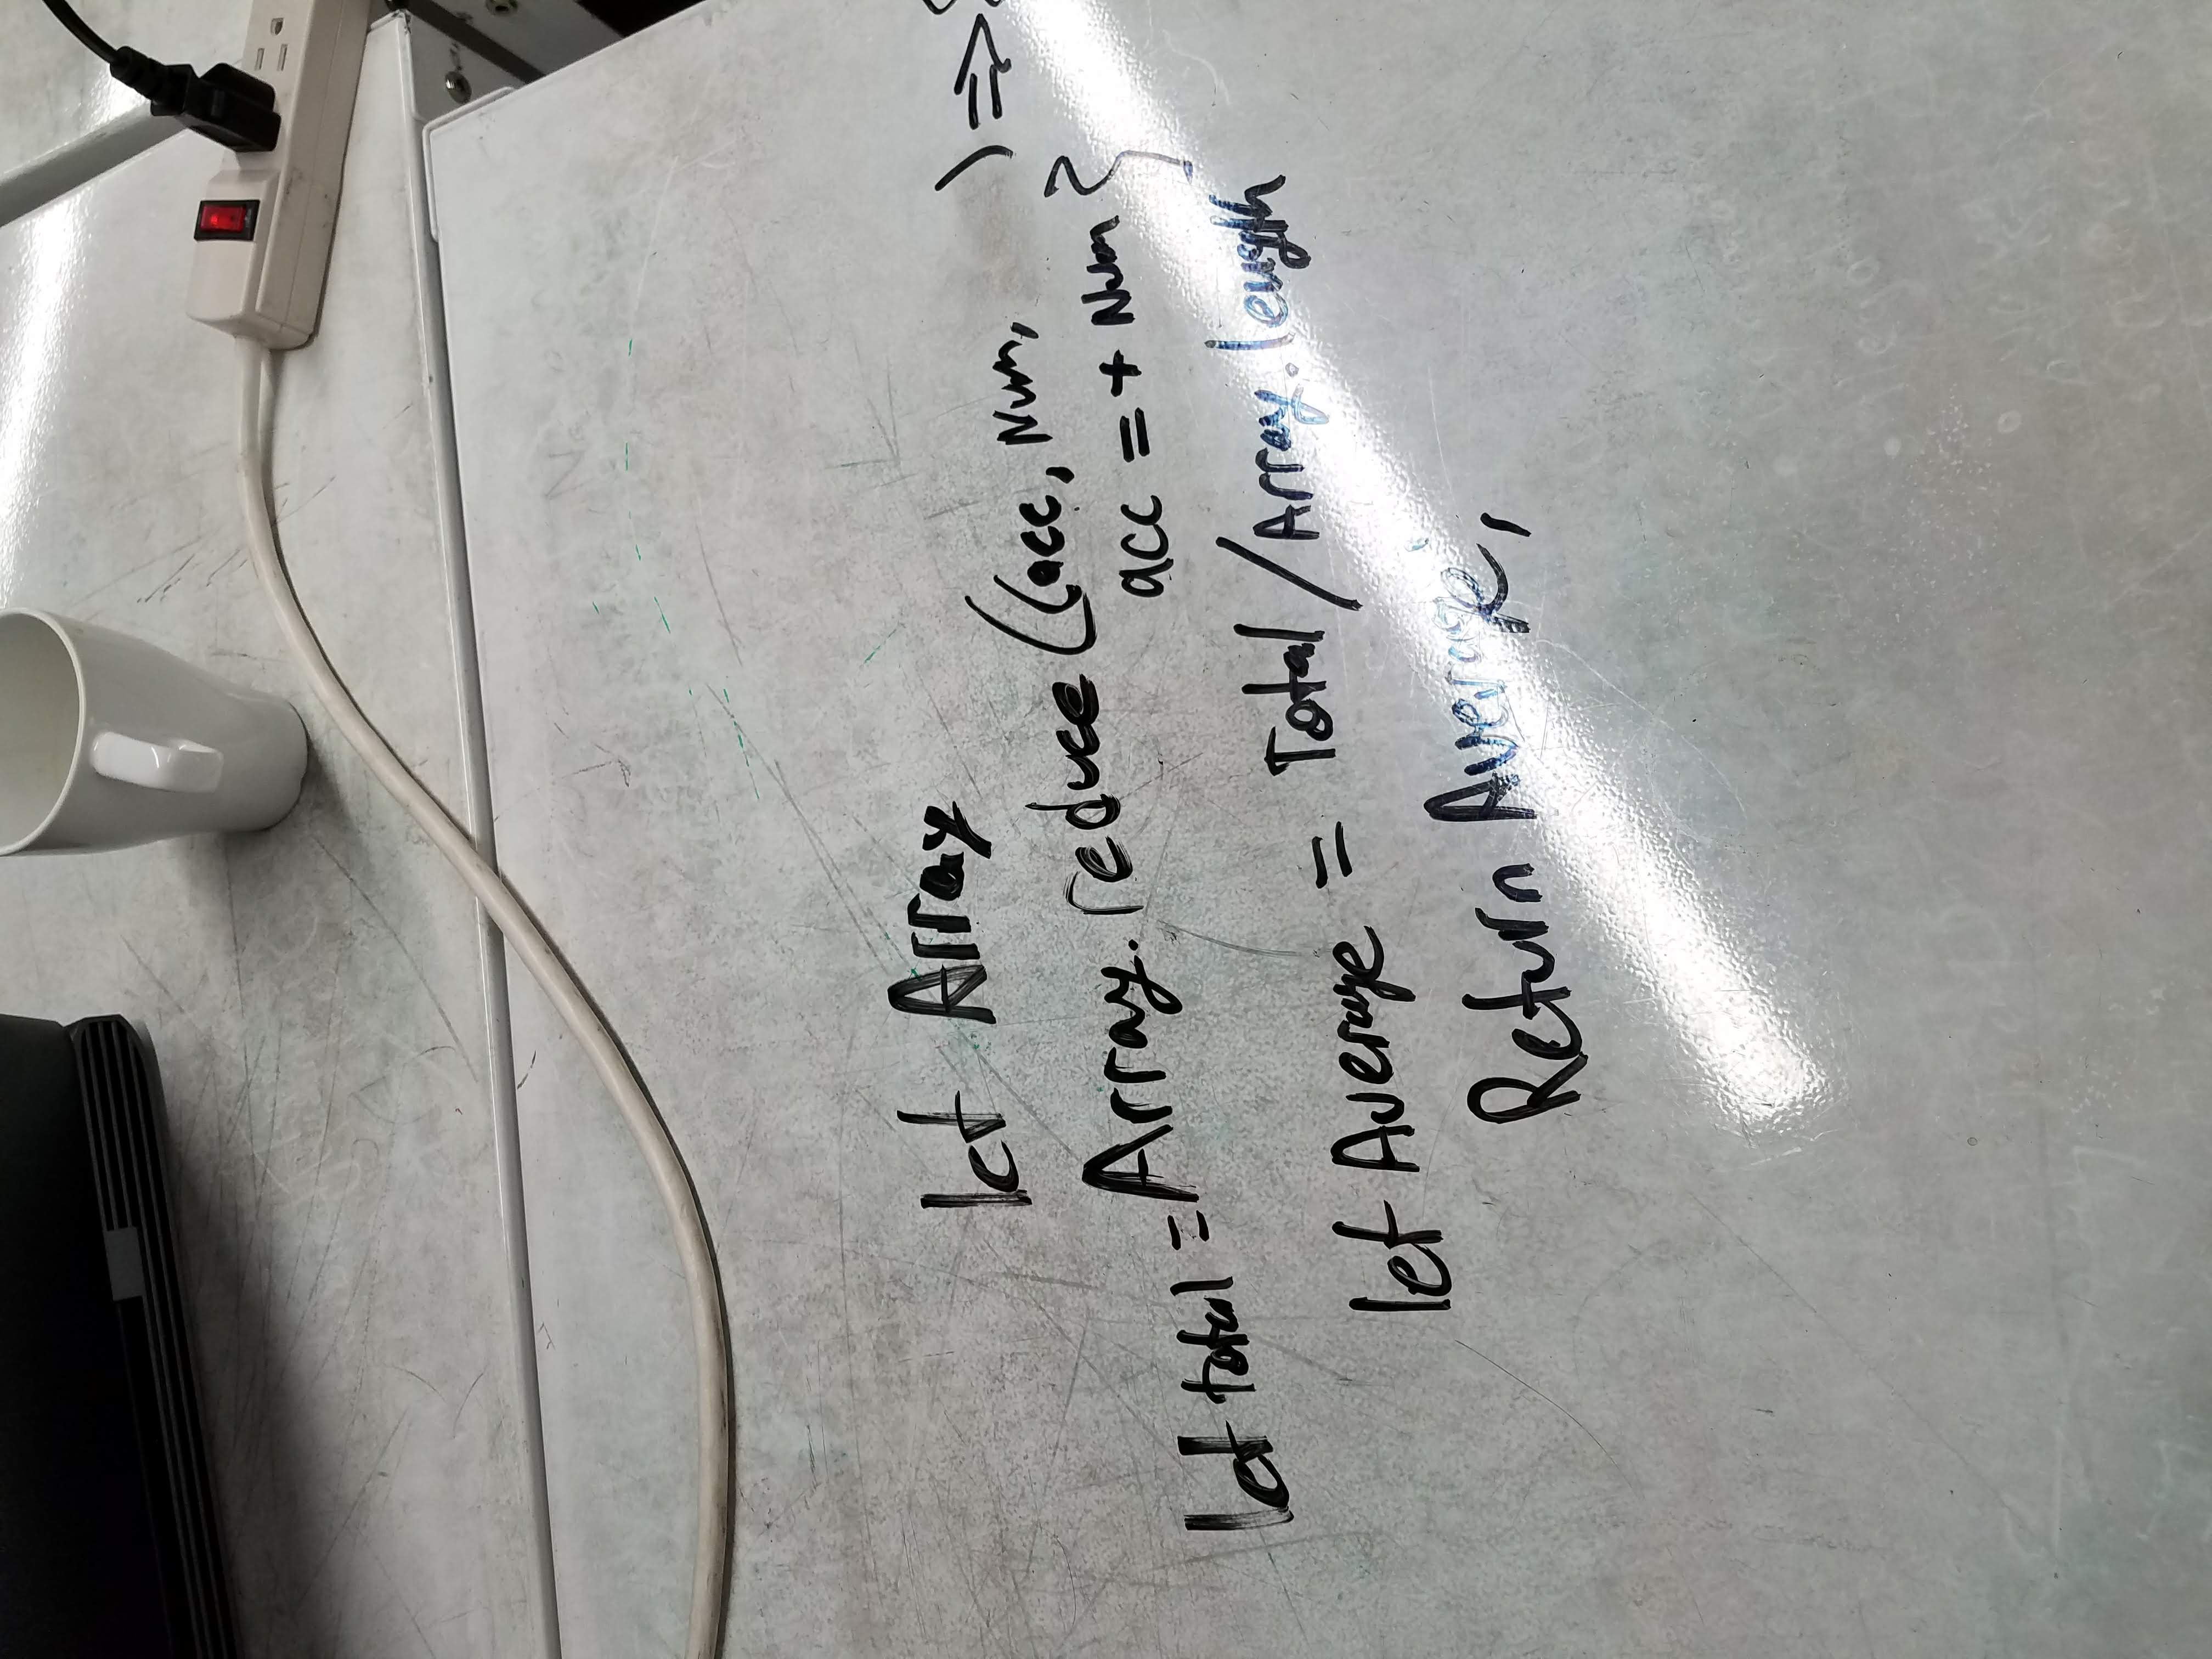 let Array
let total = Array.reduce((acc, Num, ) => {
acc =+ Num }
let Average = Total / Array.length
Return Average;